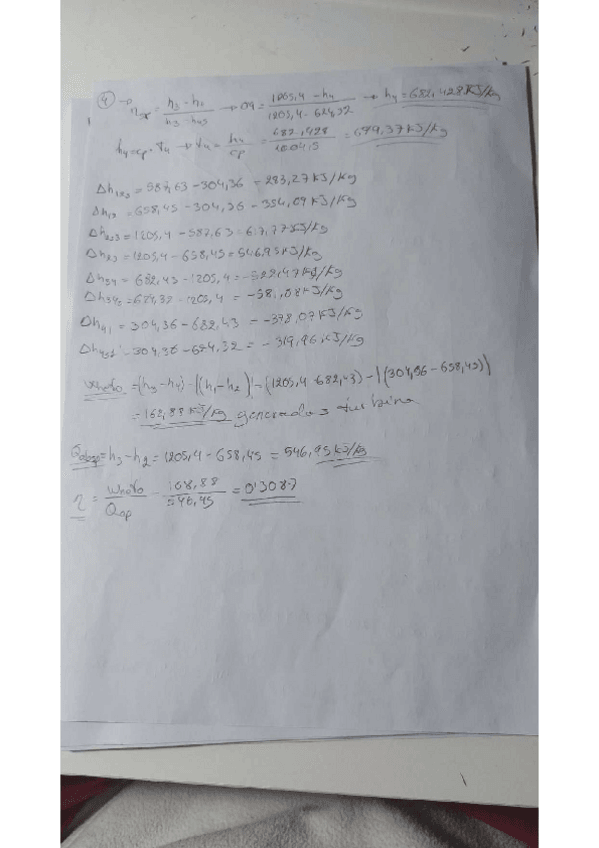 ④ → η = h3 - h4 / h3 - h4s → 0'9 = 1205,4 - h4 / 1205,4 - 624,32 → h4 = 682,428 KJ/kg
h4 = cp · T4 → T4 = h4 / cp = 682,428 / 1,0045 = 679,37 KJ/kg
Δh12s = 587,63 - 304,36 = 283,27 KJ/kg
Δh12 = 658,45 - 304,36 = 354,09 KJ/kg
Δh2s3 = 1205,4 - 587,63 = 617,77 KJ/kg
Δh23 = 1205,4 - 658,45 = 546,95 KJ/kg
Δh34 = 682,43 - 1205,4 = -522,47 KJ/kg
Δh34s = 624,32 - 1205,4 = -581,08 KJ/kg
Δh41 = 304,36 - 682,43 = -378,07 KJ/kg
Δh4s1 = 304,36 - 624,32 = -319,96 KJ/kg
Wneto = (h3 - h4) - |(h1 - h2)| = (1205,4 - 682,43) - |(304,36 - 658,45)|
= 168,88 KJ/kg generados turbina
= h3 - h2 = 1205,4 - 658,45 = 546,95 KJ/kg
η = Wneto / Qap = 168,88 / 546,95 = 0'3087